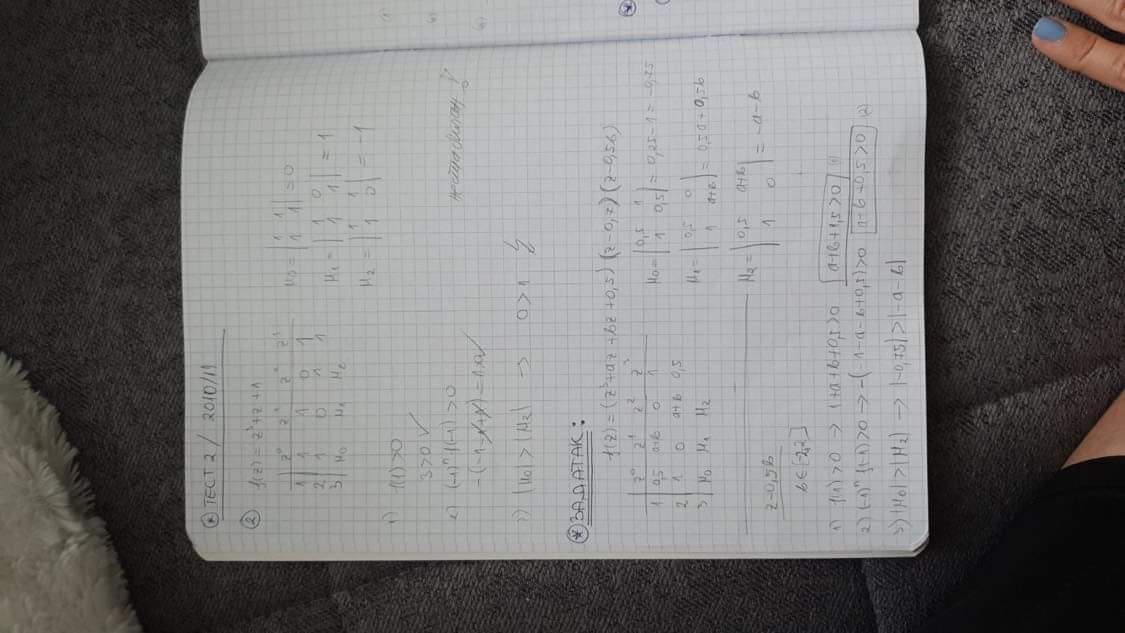 * ТЕСТ 2 / 2010/11
2 f(z) = z³+z+1
z⁰ z¹ z² z³
1 1 1 0 1
2 1 0 1 1
3 μ₀ μ₁ μ₂
μ₀ = |1 1; 1 1| = 0
μ₁ = |1 0; 1 1| = 1
μ₂ = |1 1; 1 0| = -1
1) f(1)>0
3>0 ✓
2) (-1)ⁿ f(-1)>0
3) |μ₀|>|μ₂| -> 0>1
* ЗАДАТАК:
f(z) = (z³+az+bz+0,5)(z-0,7)(z-0,5b)
z⁰ z¹ z² z³
1 0,5 a+b 0 1
2 1 0 a+b 0,5
3 μ₀ μ₁ μ₂
μ₀ = |0,5 1; 1 0,5| = 0,25-1 = -0,75
μ₁ = |0,5 0; 1 a+b| = 0,5a+0,5b
μ₂ = |0,5 a+b; 1 0| = -a-b
z-0,5b
b∈[-2,2]
1) f(1)>0 -> 1+a+b+0,5>0 a+b+1,5>0 (1)
2) (-1)ⁿ f(-1)>0 -> -(-1-a-b+0,5)>0 a+b+0,5>0 (2)
3) |μ₀|>|μ₂| -> |-0,75|>|-a-b|